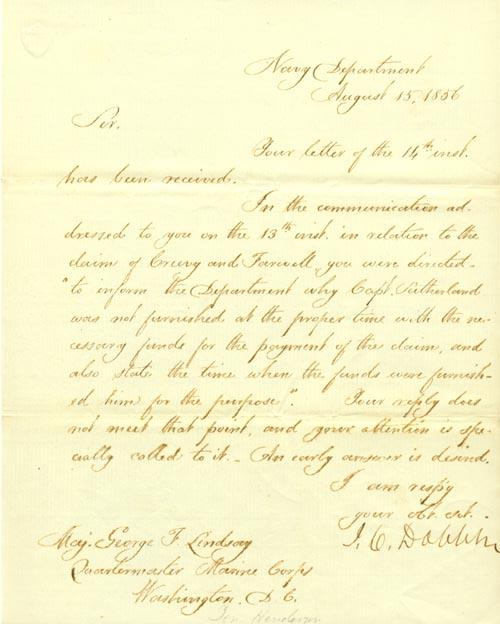 Navy Department
August 15, 1856
Sir.
Your letter of the 14th inst.
has been received.
In the communication ad-
dressed to you on the 13th inst. in relation to the
claim of Creevy and Farwell, you were directed-
"to inform the Department why Capt. Sutherland
was not furnished at the proper time with the ne-
cessary funds for the payment of the claim, and
also state the time when the funds were furnish-
ed him for the purpose". Your reply does
not meet that point, and your attention is spe-
cially called to it. - An early answer is desired.
I am respy
your obt. svt.
J. C. Dobbin
Maj. George F. Lindsay
Quartermaster Marine Corps
Washington. D. C.
Gen Henderson